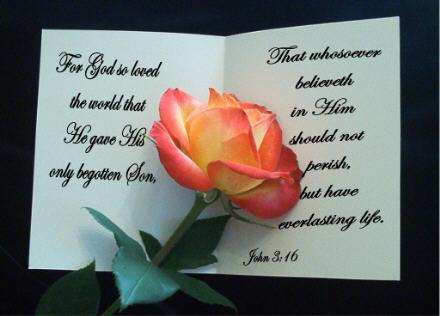 For God so loved
the world that
He gave His
only begotten Son,
That whosoever
believeth
in Him
should not
perish,
but have
everlasting life.
John 3:16